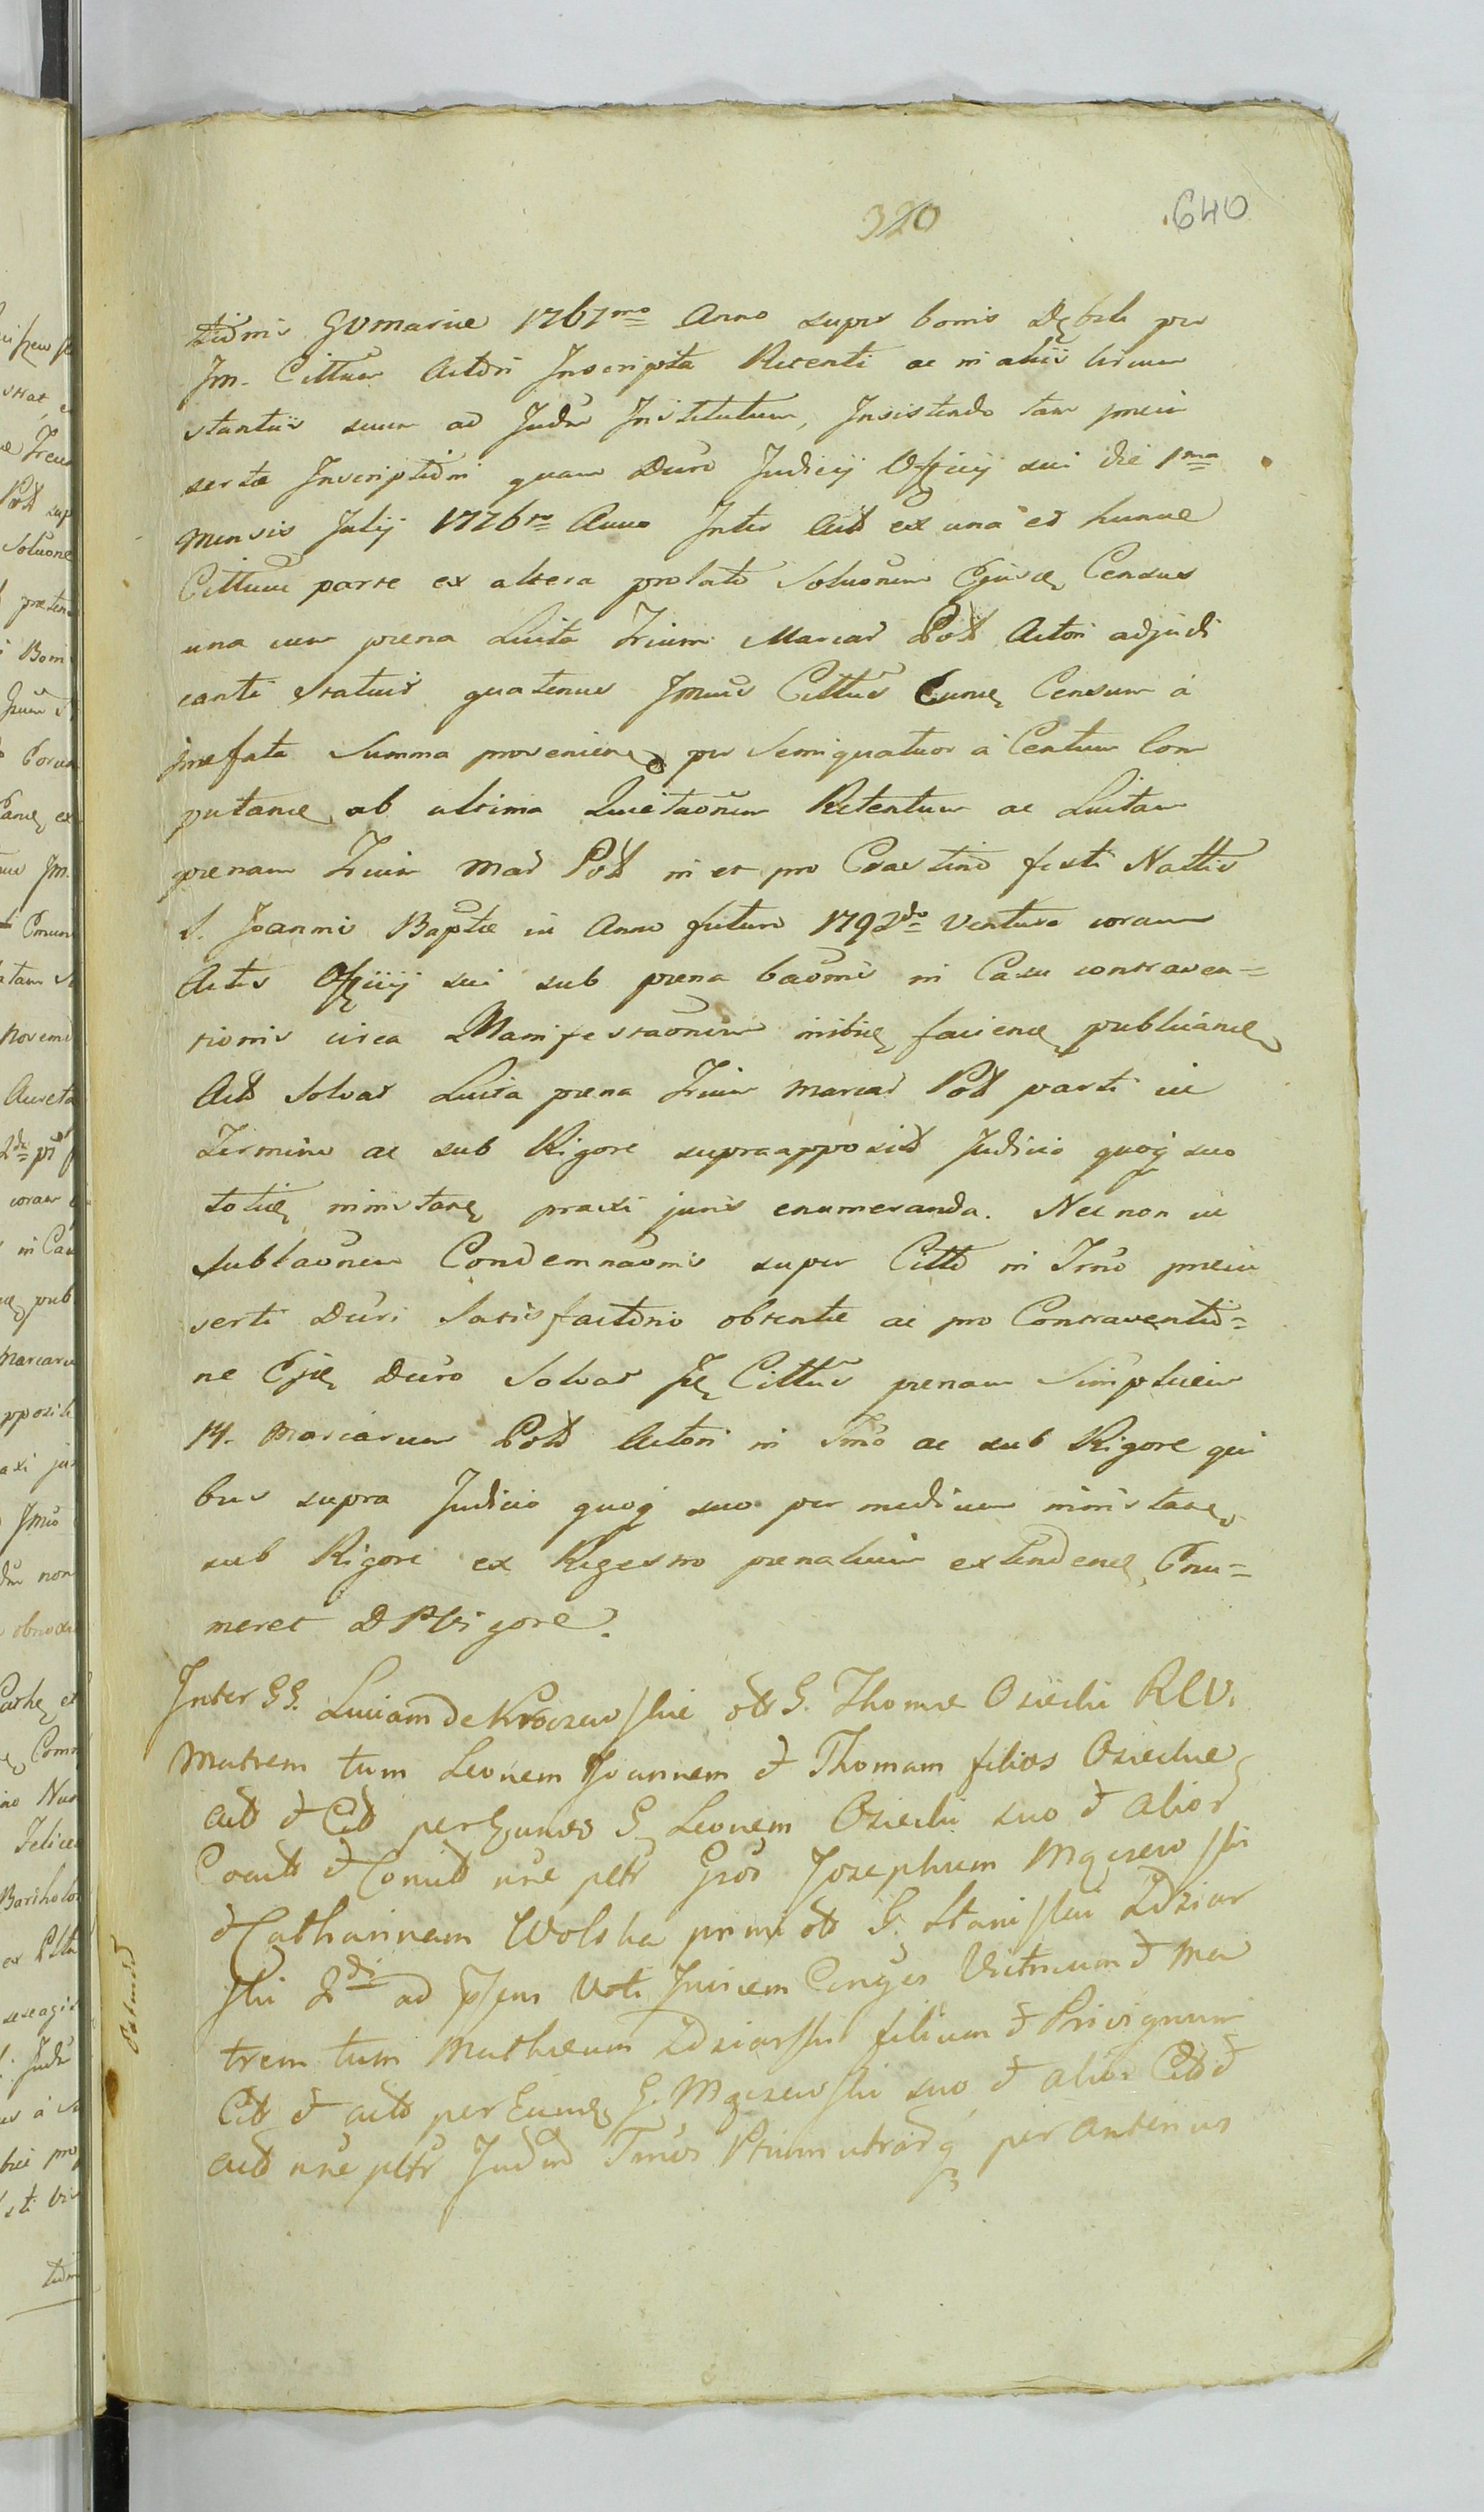 320 640
tiõnis Gomariæ 1767mo Anno super bonis Dębsk per
Jm. Cittum Actõri Inscripta Recenti ac in aliis circum
stantiis suum ad Judm Institutum, Insistendo tam præin
sertæ Inscriptiõni quam Decro Judicij Officij sui die 1ma
Mensis Julij 1776to Anno Inter Actt ex una et hunce
Cittum parte ex altera prolato Solutionem Ejusd Census
una cum pæna Luita Trium Marcar Poll Actori adjudi
canti statuit quatenus Jmus Cittus Eund Censum á
præfata Summa provenien per Semiquatuor á Centum Com
putand ab ultima Quietaõnem Retentum ac Luitam
pænam Trium Mar Poll in et pro Crastino festi Nattis
S. Joannis Baptæ in Anno futuro 1792do venturo coram
Actis Officij sui sub pæna baõnis in Casu contraven=
tionis circa Manifestaõnem inibi faciend publicand
Actt Solvat Luita pæna Trium Marcar Poll parti in
Termino ac sub Rigore supraapposit Judicio quoq suo
totid ministand praxi juris enumeranda. Nec non in
Sublaõnem Condemnaõnis super Citto in Tmo præin
serti Decri Satisfactõrio obtentæ ac pro Contraventiõ=
ne Ejd Decro Solvat Jd Cittus pænam Simplicem
14. Marcarum Poll Actori in Tmo ac sub Rigore qui
bus supra Judicio quoq suo per medium ministand
sub Rigore ex Regestro pænalium extendend Enu=
meret D P Vigore.
Inter GG. Luciam de Kroczewskie ott G. Thomæ Osiecki RCV.
Matrem tum Leonem Joannem et Thomam filios Osieckie
Actt et Citt per Eundos G Leonem Osiecki suo et alior
Coactt et Concitt nre pltr Gsos Josephum Mączewski
et Catharinam Wolska primi ott G. Stanislai Zdziar
ski 2di ad psens Voti Invicem Conges Vitricum et Ma
trem tum Mathæum Zdziarski filium et Privignum
Citt et actt per Eund G. Mączewski suo et alior Citt et
actt nre pltr Judm Tmos Ptium utrarq per anterius